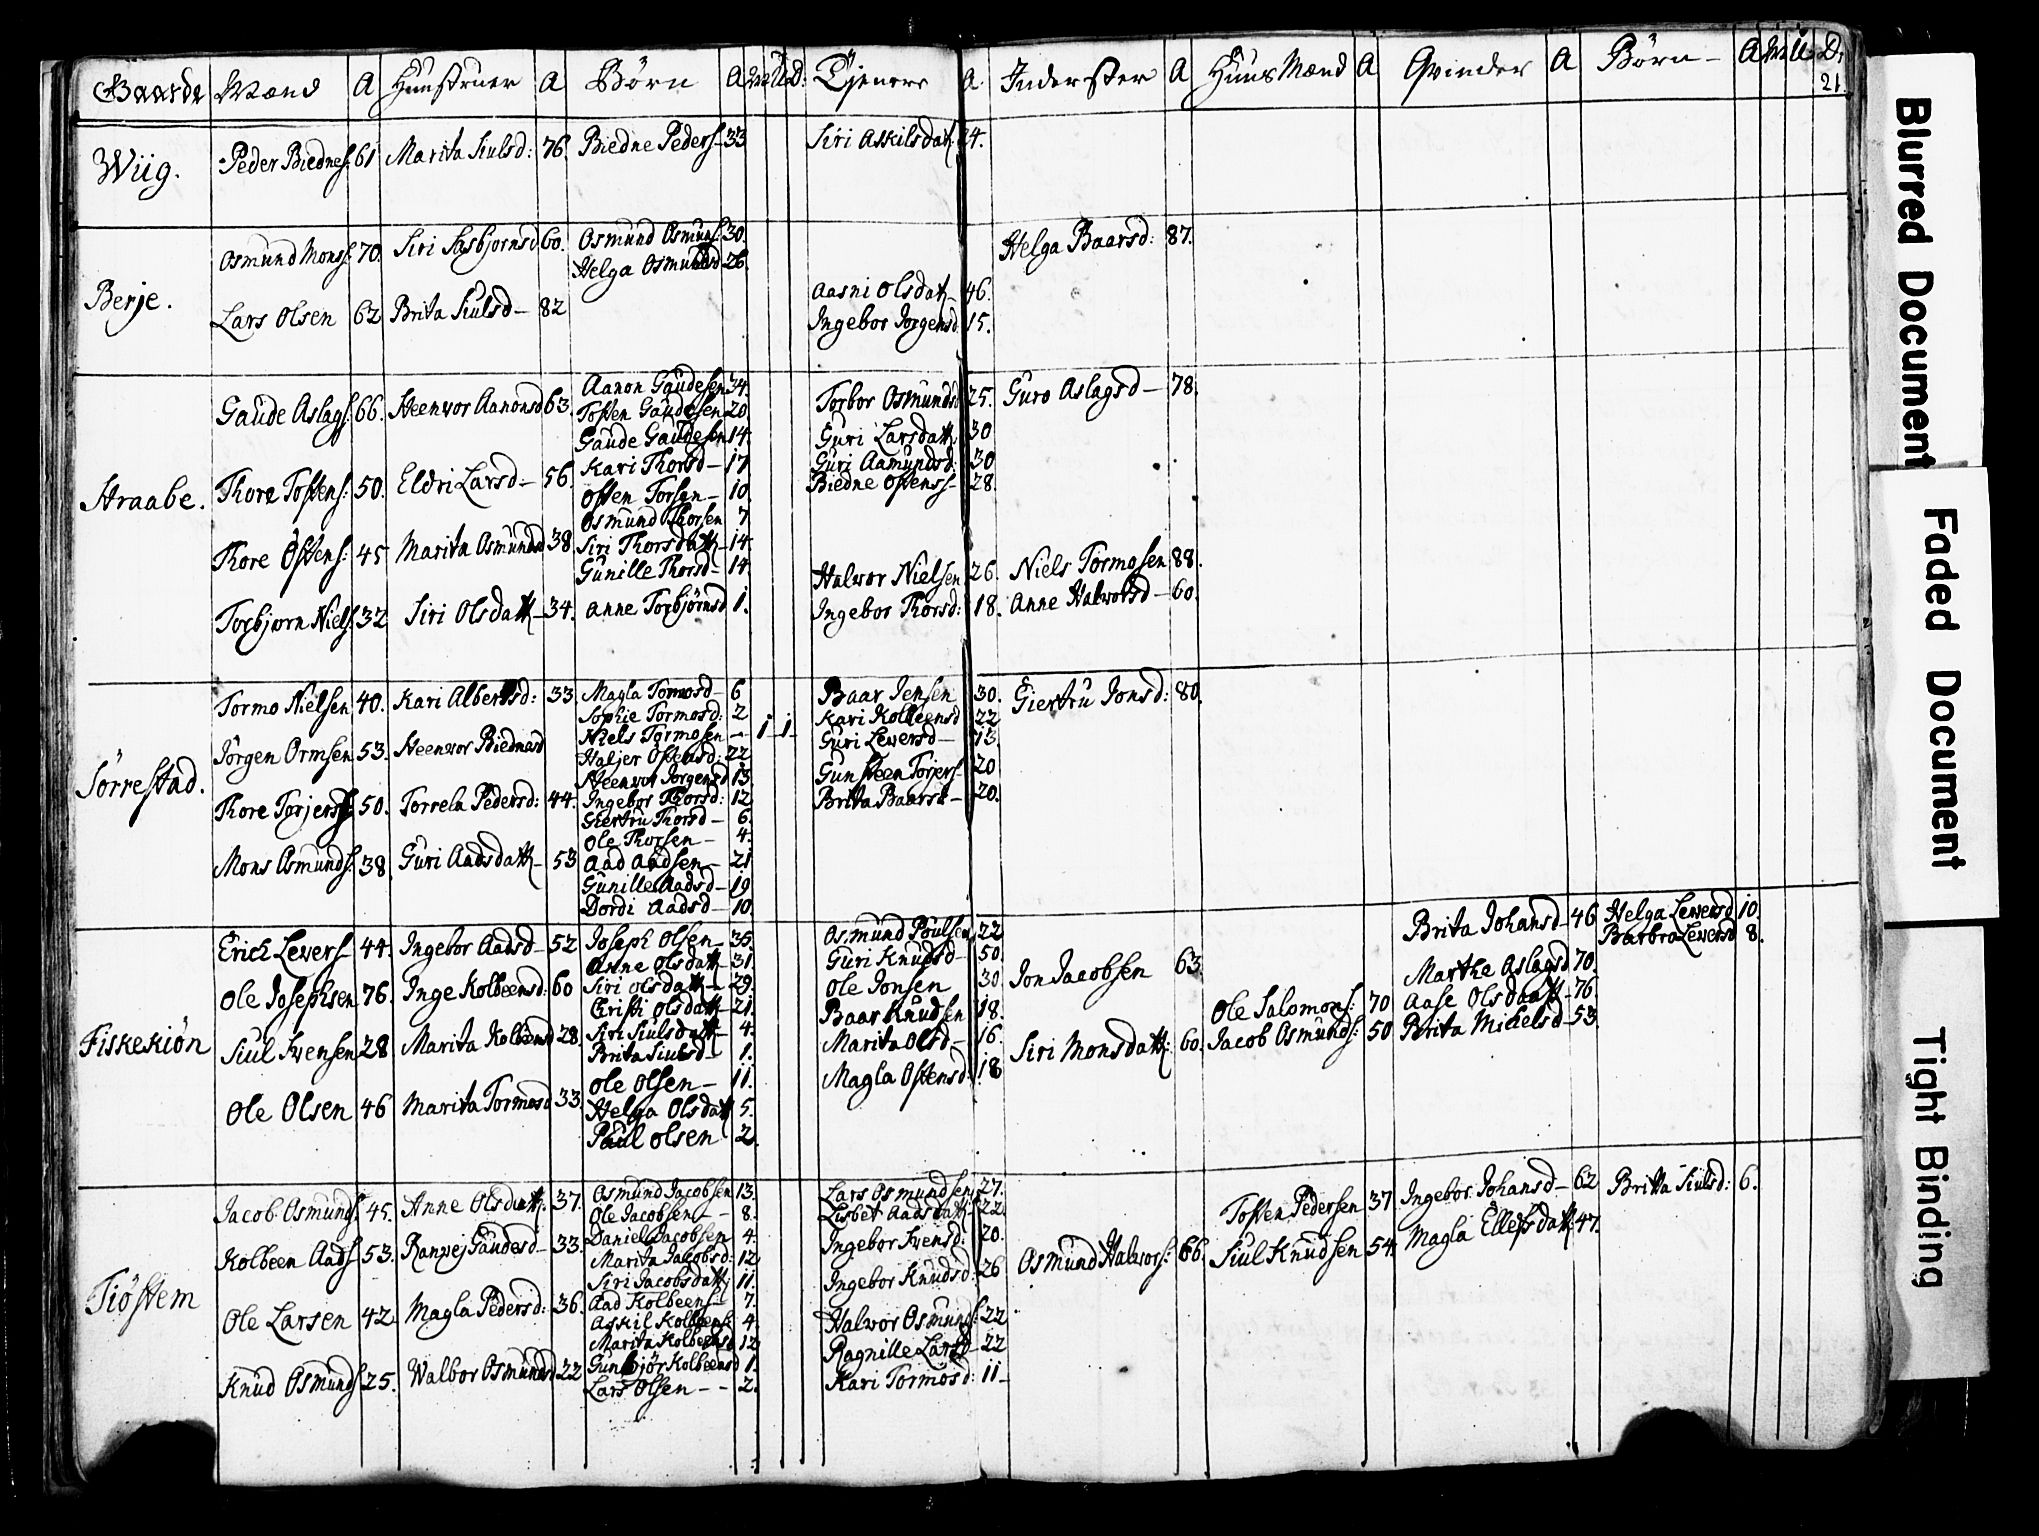 Gaarde Mænd A Huustruer A Børn A M U D: Tjenere A Inderster A Huus Mænd A Qvinder A Børn A M U D:
21
Wiig.
Peder Biednes: 61 Marita Siulsd: 76. Biedne Peders- 33 Siri Askilsdatt. 24.
Berje.
Osmund Monss: 70. Siri Sasbjornsd 60. Osmund Osmuns: 30. Helga Baarsd: 87.
Helga Osmundsd 26.
Aasni Olsdatt- 46.
Lars Olsen 62 Brita Siulsd- 82 Ingebor Jorgensd 15.
Straabe.
Aanon Gaudesen 34.
Gaude Aslags: 66. Steenvor Aanonsd 63. Tosten Gaudesen 20. Torbor Osmundsd 25. Guro Aslagsd- 78.
Gaude Gaudesen 14. Guri Larsdatt 30
Kari Thorsd- 17 Guri Aamundsd: 30
Thore Tostens: 50. Eldri Larsd- 56. Osten Torsen- 10. Biedne Ostenss- 28.
Osmund Thorsen 7
Thore Östens: 45 Marita Osmundsd 38. Siri Thorsdatt- 14.
Gunille Thorsd- 14. Halvor Nielsen 26. Niels Tormosen 88.
Torbjørn Niels: 32 Siri Olsdatt- 34. Anne Torbjørnsd 1. Ingebor Thorsd: 18. Anne Halvorsd- 60.
Sørrestad.
Tormo Nielsen 40. Kari Albertsd: 33 Magla Tormosd- 6 Baar Jensen 30. Giertru Jonsd: 80.
Sophie Tormosd: 2 Kari Kolbeensd 22
Niels Tormosen - 1 1 Guri Leversd- 13.
Jörgen Ormsen 53. Steenvor Biednasd Haljer Ostensd: 22 Gunsteen Torjers- 20
Steenvor Jorgensd 13.
Thore Torjers: 50. Torrela Pedersd: 44. Ingebor Thorsd: 12 Brita Baarsd- 20.
Giertru Thorsd- 6.
Ole Thorsen- 4.
Mons Osmunds: 38 Guri Aadsdatt- 53 Aad Aadsen- 21
Gunille Aadsd- 19
Dordi Aadsd- 10.
Fiskekiön
Erich Levers- 44. Ingebor Aadsd- 52 Joseph Olsen- 35. Osmund Poulsen 22 Brita Johansd- 46 Helga Leversd 10.
Anne Olsdatt- 31 Guri Knudsd- 50. Barbra Leversd 8.
Ole Josephsen 76. Inge Kolbeensd: 60 Siri Olsdatt- 29. Ole Jonsen 30 Jon Jacobsen 63 Marthe Aslagsd 70.
Cristi Olsdatt- 21. Baar Knudsen 18. Ole Salomons: 70 Aase Olsdaatt- 76.
Siul Svensen 28 Marita Kolbensd 28. Siri Siulsdatt- 4. Marita Olsd- 16. Siri Monsdatt: 60. Jacob Osmunds: 50 Brita Michelsd- 53.
Brita Siulsd- 1. Magla Ostensd: 18
Ole Olsen 46 Marita Tormosd 33. Ole Olsen- 11.
Helga Olsdatt 5.
Paul Olsen 2.
Tiöstem
Jacob Osmunds: 45. Anne Olsdatt: 37. Osmund Jacobsen 13. Lars Osmundsen 27. Tosten Pedersen 37 Ingebor Johansd- 62 Britta Siulsd: 6.
Ole Jacobsen- - 8. Lisbet Aadsdatt: 22
Kolbeen Aads- 53. Ranvej Gaudesd- 33. Daniel Jacobsen 4. Ingebor Svensd: 20. Osmund Halvors: 66. Siul Knudsen 54. Magla Ellefsdatt 47.
Marita Jacobsd: 12
Siri Jacobsdatt 11. Ingebor Knudsd: 26
Ole Larsen 42 Magla Pedersd: 36. Aad Kolbeens- 7. Halvor Osmunds: 22
Askil Kolbeens: 4.
Marita Kolbeensd 12 Ragnille Larsd- 22
Knud Osmunds 25. Walbor Osmundsd 22 Gunbjør Kolbeensd 1. Kari Tormosd: 11-
Lars Olsen- - 2.
Blurred Document
Faded Document
Tight Binding